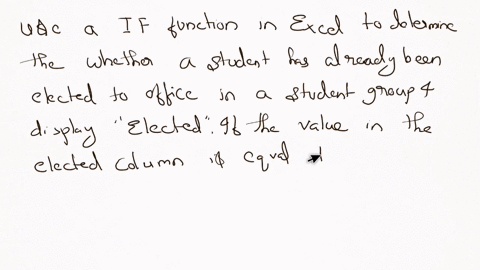 use a IF function in Excel to determine
the whether a student has already been
elected to office in a student group &
display "Elected". If the value in the
elected column is equal